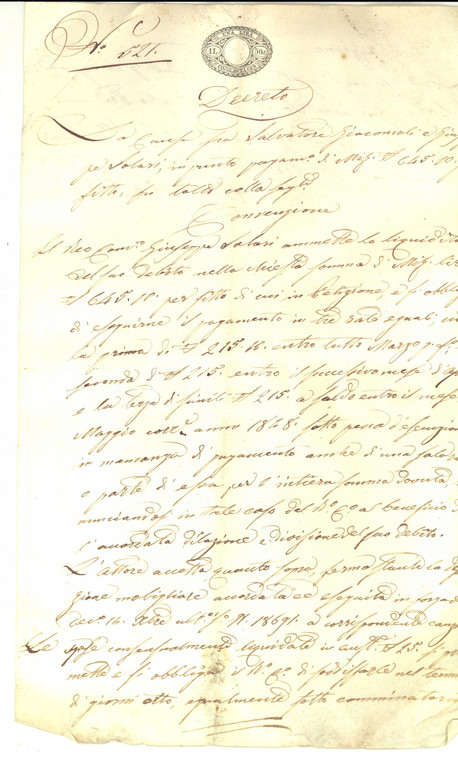 N.° 521.
UNA LIRA
Decreto
La Causa fra Salvatore Giacomoli e Giusep
pe Solari, in punto pagam.° di Mil. £ 645.10
fitto, fu tolta colla seg.te
Convenzione
Il Reo Conv.° Giuseppe Solari ammette la liquidità
del suo debito nella chiesta somma di Mil. Lire
£ 645.10. per fitto di cui in Petizione, e si obbliga
di eseguirne il pagamento in tre rate eguali,
la prima di £ 215.10. entro tutto Marzo
seconda di £ 215. entro il successivo mese d'
e la terza di simili £ 215. a saldo entro il mese
Maggio corr.e anno 1848. sotto pena d'esecuzione
in mancanza di pagamento anche di una sola
o parte di essa, per l'intiera somma dovuta
nunciando in tale caso del R.° C.° al beneficio
l'accordata dilazione e divisione del suo debito.
L'attore accetta quanto sopra, ferma stante la
gione mobigliare accordata ed eseguita in
Dec.° 14. Xbre ult.° N. 18691. a corrispondente
Le spese consensualmente liquidate in aust. £ 25. si
mette e si obbliga il R.° C.° di soddisfarle nel
di giorni otto, egualmente sotto comminatoria